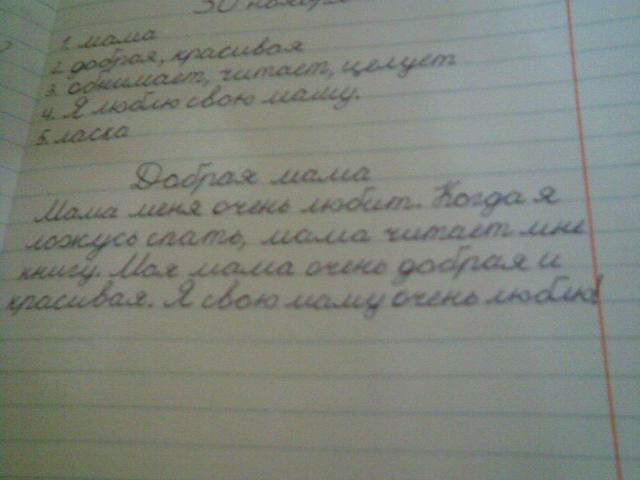 30 ноября
1. мама
2. добрая, красивая
3. обнимает, читает, целует
4. Я люблю свою маму.
5. ласка
Добрая мама
Мама меня очень любит. Когда я
ложусь спать, мама читает мне
книгу. Моя мама очень добрая и
красивая. Я свою маму очень люблю!